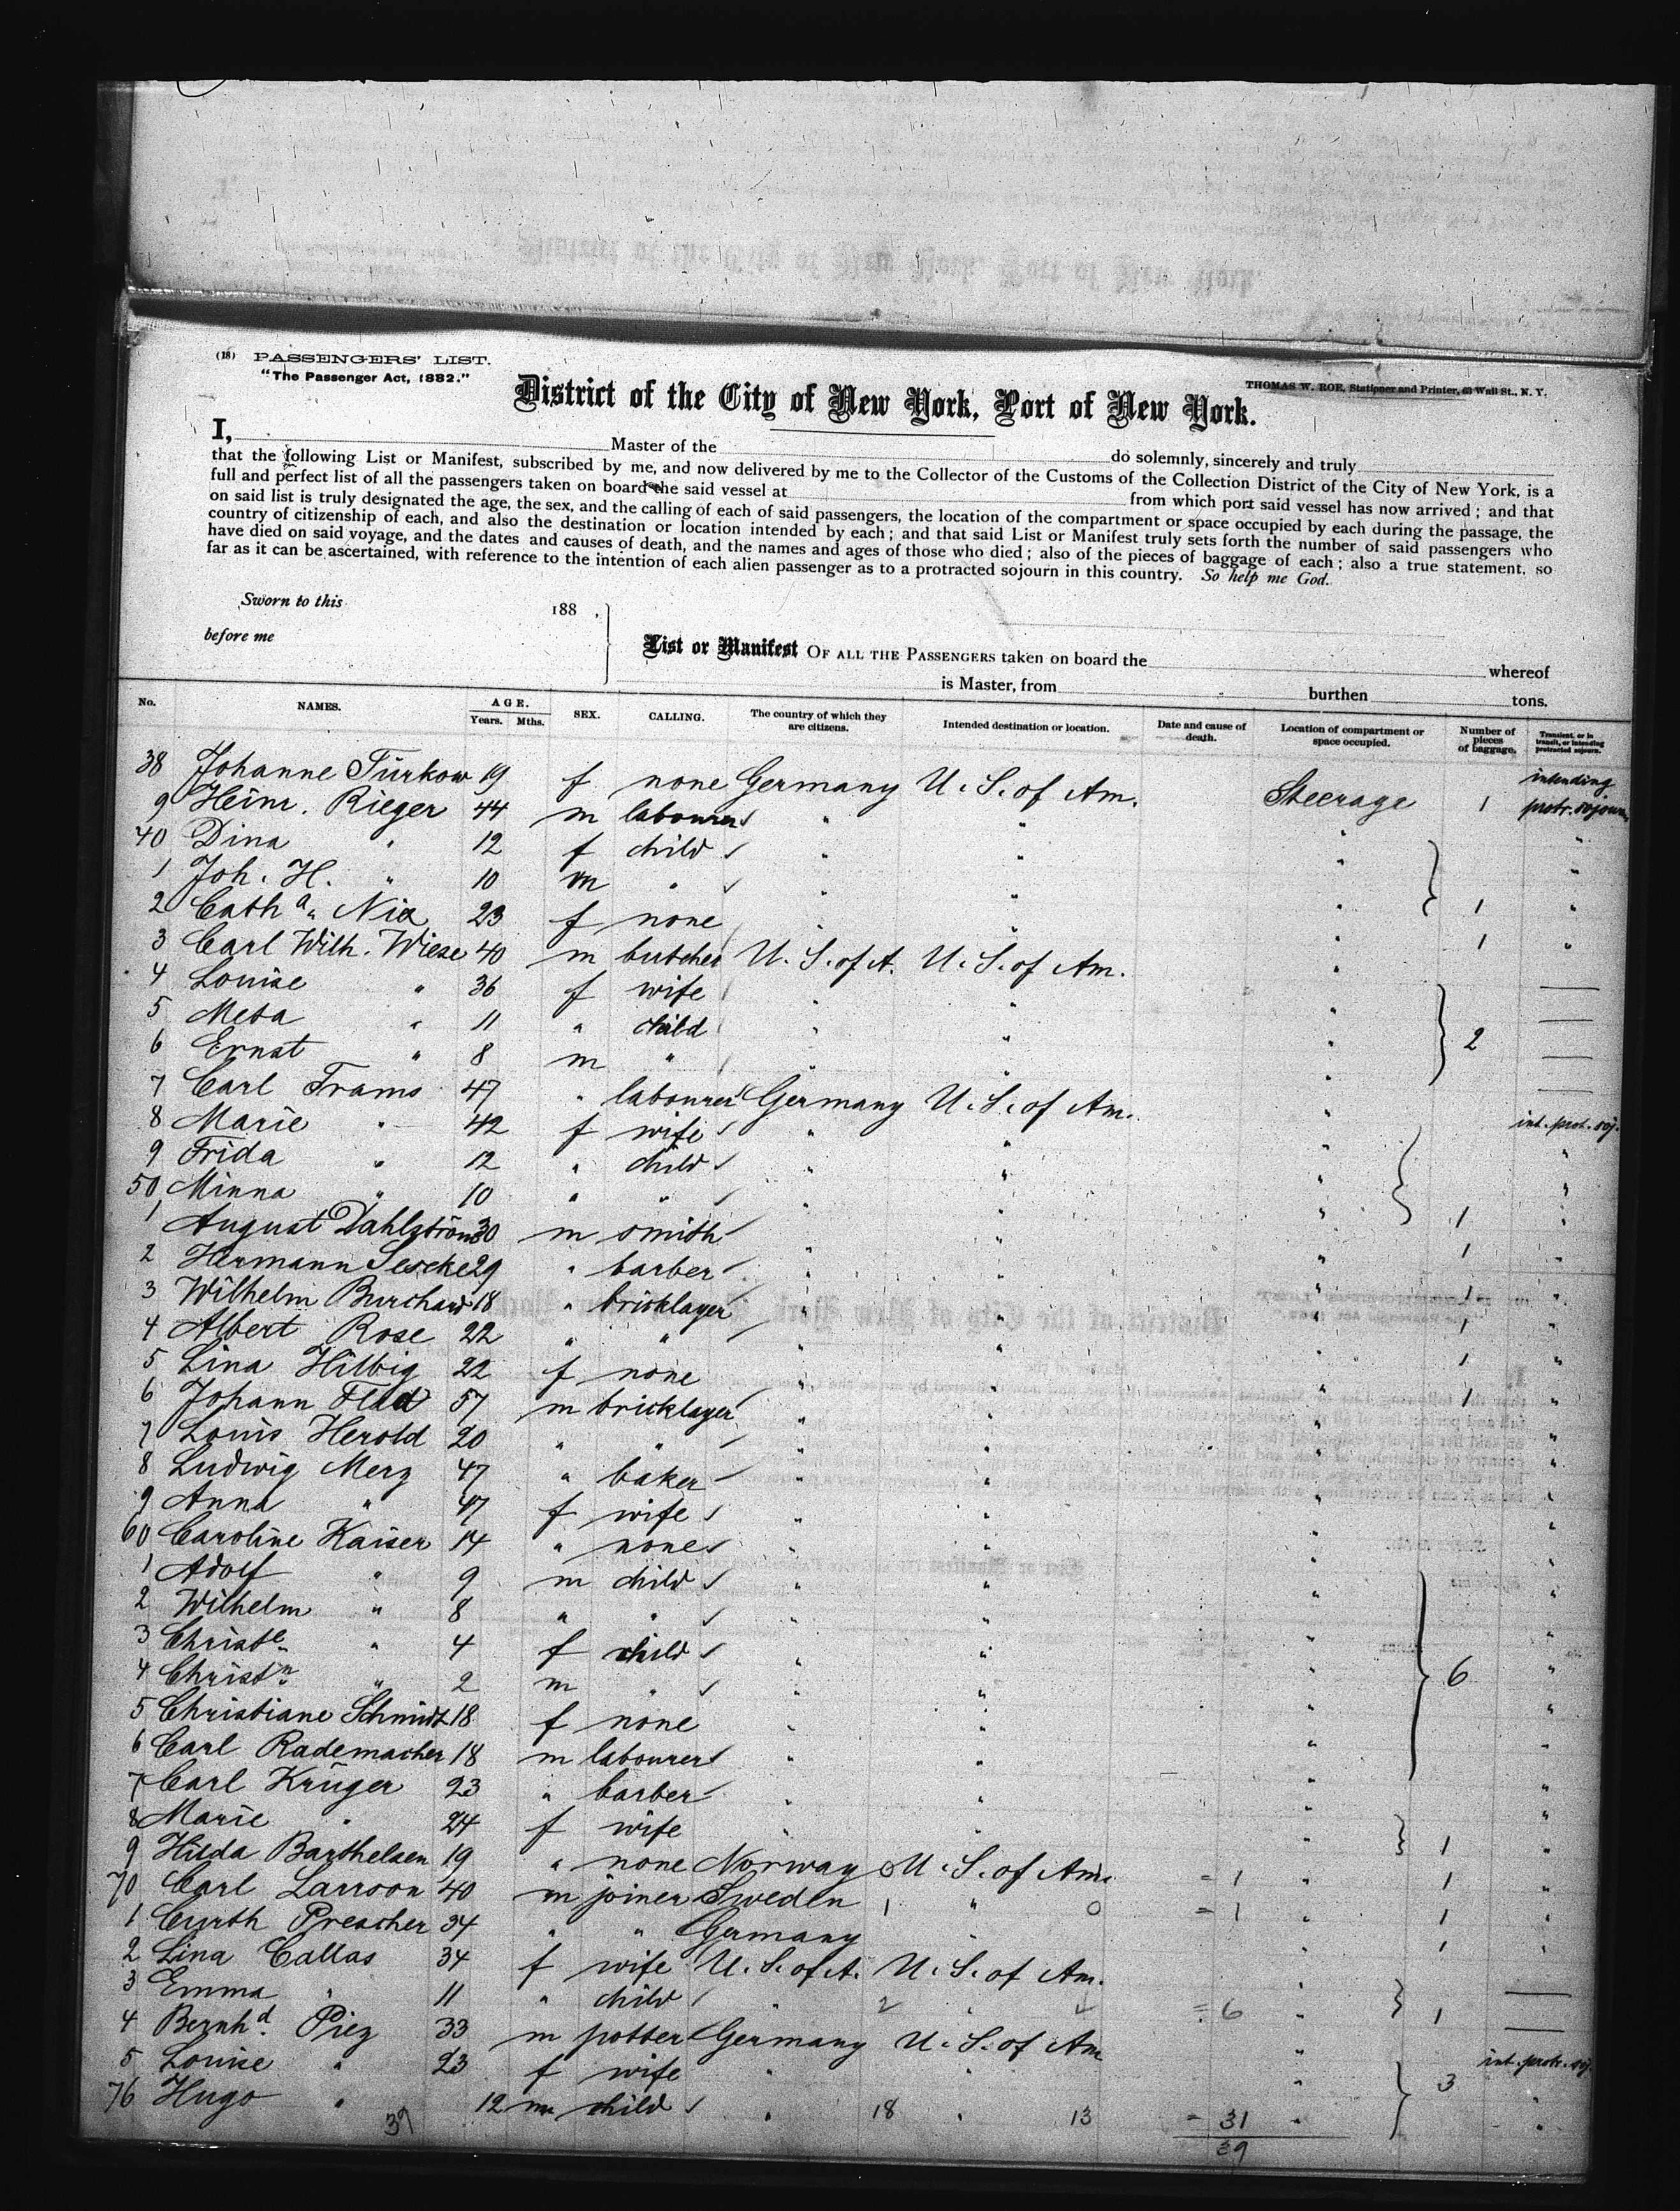 (18) PASSENGERS' LIST.
"The Passenger Act, 1882."
THOMAS W. ROE, Stationer and Printer, 63 Wall St., N. Y.
District of the City of New York, Port of New York.
I, Master of the do solemnly, sincerely and truly
that the following List or Manifest, subscribed by me, and now delivered by me to the Collector of the Customs of the Collection District of the City of New York, is a
full and perfect list of all the passengers taken on board the said vessel at from which port said vessel has now arrived; and that
on said list is truly designated the age, the sex, and the calling of each of said passengers, the location of the compartment or space occupied by each during the passage, the
country of citizenship of each, and also the destination or location intended by each; and that said List or Manifest truly sets forth the number of said passengers who
have died on said voyage, and the dates and causes of death, and the names and ages of those who died; also of the pieces of baggage of each; also a true statement, so
far as it can be ascertained, with reference to the intention of each alien passenger as to a protracted sojourn in this country. So help me God.
Sworn to this 188 .
before me
List or Manifest OF ALL THE PASSENGERS taken on board the whereof
is Master, from burthen tons.
No. NAMES. AGE. Years. Mths. SEX. CALLING. The country of which they are citizens. Intended destination or location. Date and cause of death. Location of compartment or space occupied. Number of pieces of baggage. Transient, or in transit, or intending protracted sojourn.
38 Johanne Türkow 19 f none Germany U. S. of Am. Steerage 1 intending protr. sojourn
9 Heinr. Rieger 44 m labourer " " " "
40 Dina " 12 f child " " " "
1 Joh. H. " 10 m " " " " 1 "
2 Cath a. Nix 23 f none " " " 1 "
3 Carl Wilh. Wiese 40 m butcher U. S. of A. U. S. of Am. "
4 Louise " 36 f wife " " "
5 Meta " 11 " child " " " 2
6 Ernst " 8 m " " " "
7 Carl Frams 47 " labourer Germany U. S. of Am. " int. prot. soj.
8 Marie " 42 f wife " " " "
9 Frida " 12 " child " " " "
50 Minna " 10 " " " " " 1 "
1 August Dahlström 30 m smith " " " 1 "
2 Hermann 29 " barber " " " 1 "
3 Wilhelm Burchard 18 " bricklayer " " " 1 "
4 Albert Rose 22 " " " " " 1 "
5 Lina Hilbig 22 f none " " " 1 "
6 Johann 57 m bricklayer " " " "
7 Louis Herold 20 " " " " " "
8 Ludwig Merz 47 " baker " " " "
9 Anna " 47 f wife " " " "
60 Caroline Kaiser 14 " none " " " "
1 Adolf " 9 m child " " " "
2 Wilhelm " 8 " " " " " "
3 Christe. " 4 f child " " " 6 "
4 Christn. " 2 m " " " " "
5 Christiane Schmidt 18 f none " " " "
6 Carl Rademacher 18 m labourer " " " "
7 Carl Krüger 23 " barber " " " "
8 Marie " 24 f wife " " " 1 "
9 Hilda Barthelsen 19 " none Norway 0 U. S. of Am. = 1 " 1 "
70 Carl Larsson 40 m joiner Sweden 1 " 0 = 1 " 1 "
1 Curth Prescher 34 " " Germany " " 1 "
2 Lina Callas 34 f wife U. S. of A. U. S. of Am. "
3 Emma " 11 " child " 2 " 4 = 6 " 1
4 Bernhd. Piez 33 m potter Germany U. S. of Am " int. protr. soj.
5 Louise " 23 f wife " " " 3 "
76 Hugo " 12 m child " 18 " 13 = 31 " "
39 39